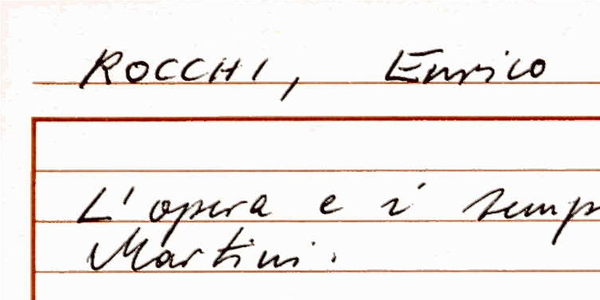 ROCCHI, Enrico
L'opera e i temp
Martini.